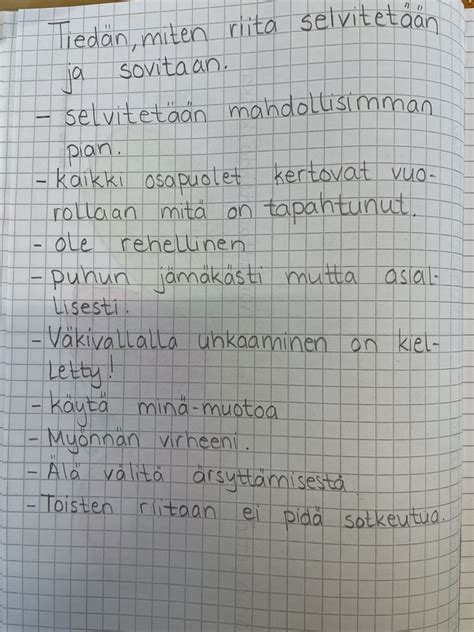 Tiedän, miten riita selvitetään
ja sovitaan.
- selvitetään mahdollisimman
pian.
- kaikki osapuolet kertovat vuo-
rollaan mitä on tapahtunut.
- ole rehellinen
- puhun jämäkästi mutta asial-
lisesti.
- Väkivallalla uhkaaminen on kiel-
letty!
- Käytä minä-muotoa
- Myönnän virheeni.
- Älä välitä ärsyttämisestä
- Toisten riitaan ei pidä sotkeutua.